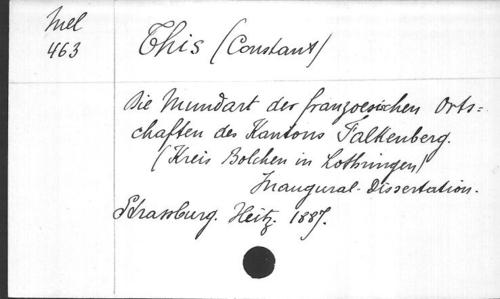 Mel
463
This (Constant)
Die Mundart der franzoesischen Orts=
chaften des Kantons Falkenberg.
(Kreis Bolchen in Lothringen)
Inaugural-Dissertation.
Strassburg. Heitz. 1887.